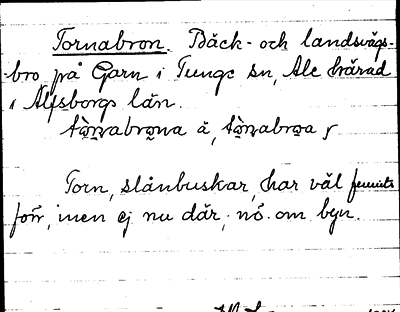 Tornabron. Bäck- och landsvägs-
bro på Garn i Tunge sn, Ale härad
i Älfsborgs län.
Torn, slånbuskar, har väl funnits
förr, men ej nu där, nö. om byn.